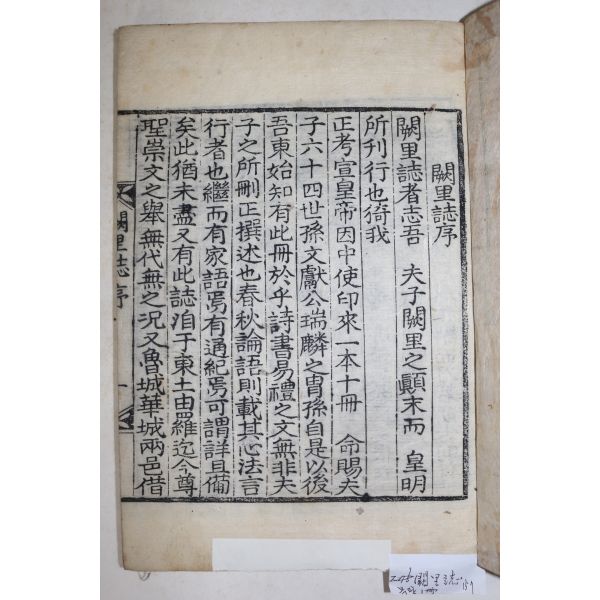 闕里誌序
闕里誌者志吾 夫子闕里之顚末而 皇明
所刊行也猗我
正考宣皇帝因中使印來一本十冊 命賜夫
子六十四世孫文獻公瑞麟之胄孫自是以後
吾東始知有此冊於乎詩書易禮之文無非夫
子之所刪正撰述也春秋論語則載其心法言
行者也繼而有家語焉有通紀焉可謂詳且備
矣此猶未盡又有此誌洎于東土由羅迄今尊
聖崇文之擧無代無之況又魯城華城兩邑借
闕里誌序
一
闕里誌